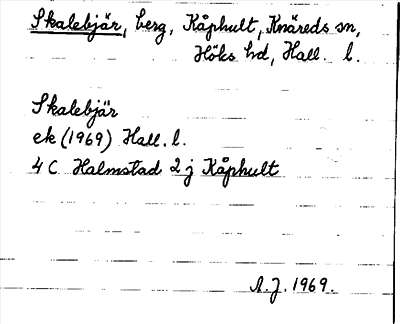 Skalebjär, berg, Kåphult, Knäreds sn,
Höks hd, Hall. l.
Skalebjär
ek (1969) Hall. l.
4 C Halmstad 2 j Kåphult
A.J. 1969.